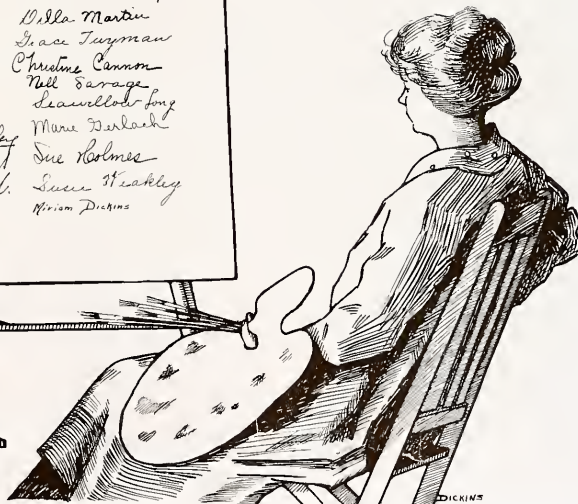 Della Martin
Grace Tuzman
Christine Cannon
Nell Savage
Seawillow Long
Marie Gerlach
Sue Holmes
Susie Weakley
Miriam Dickins
DICKINS